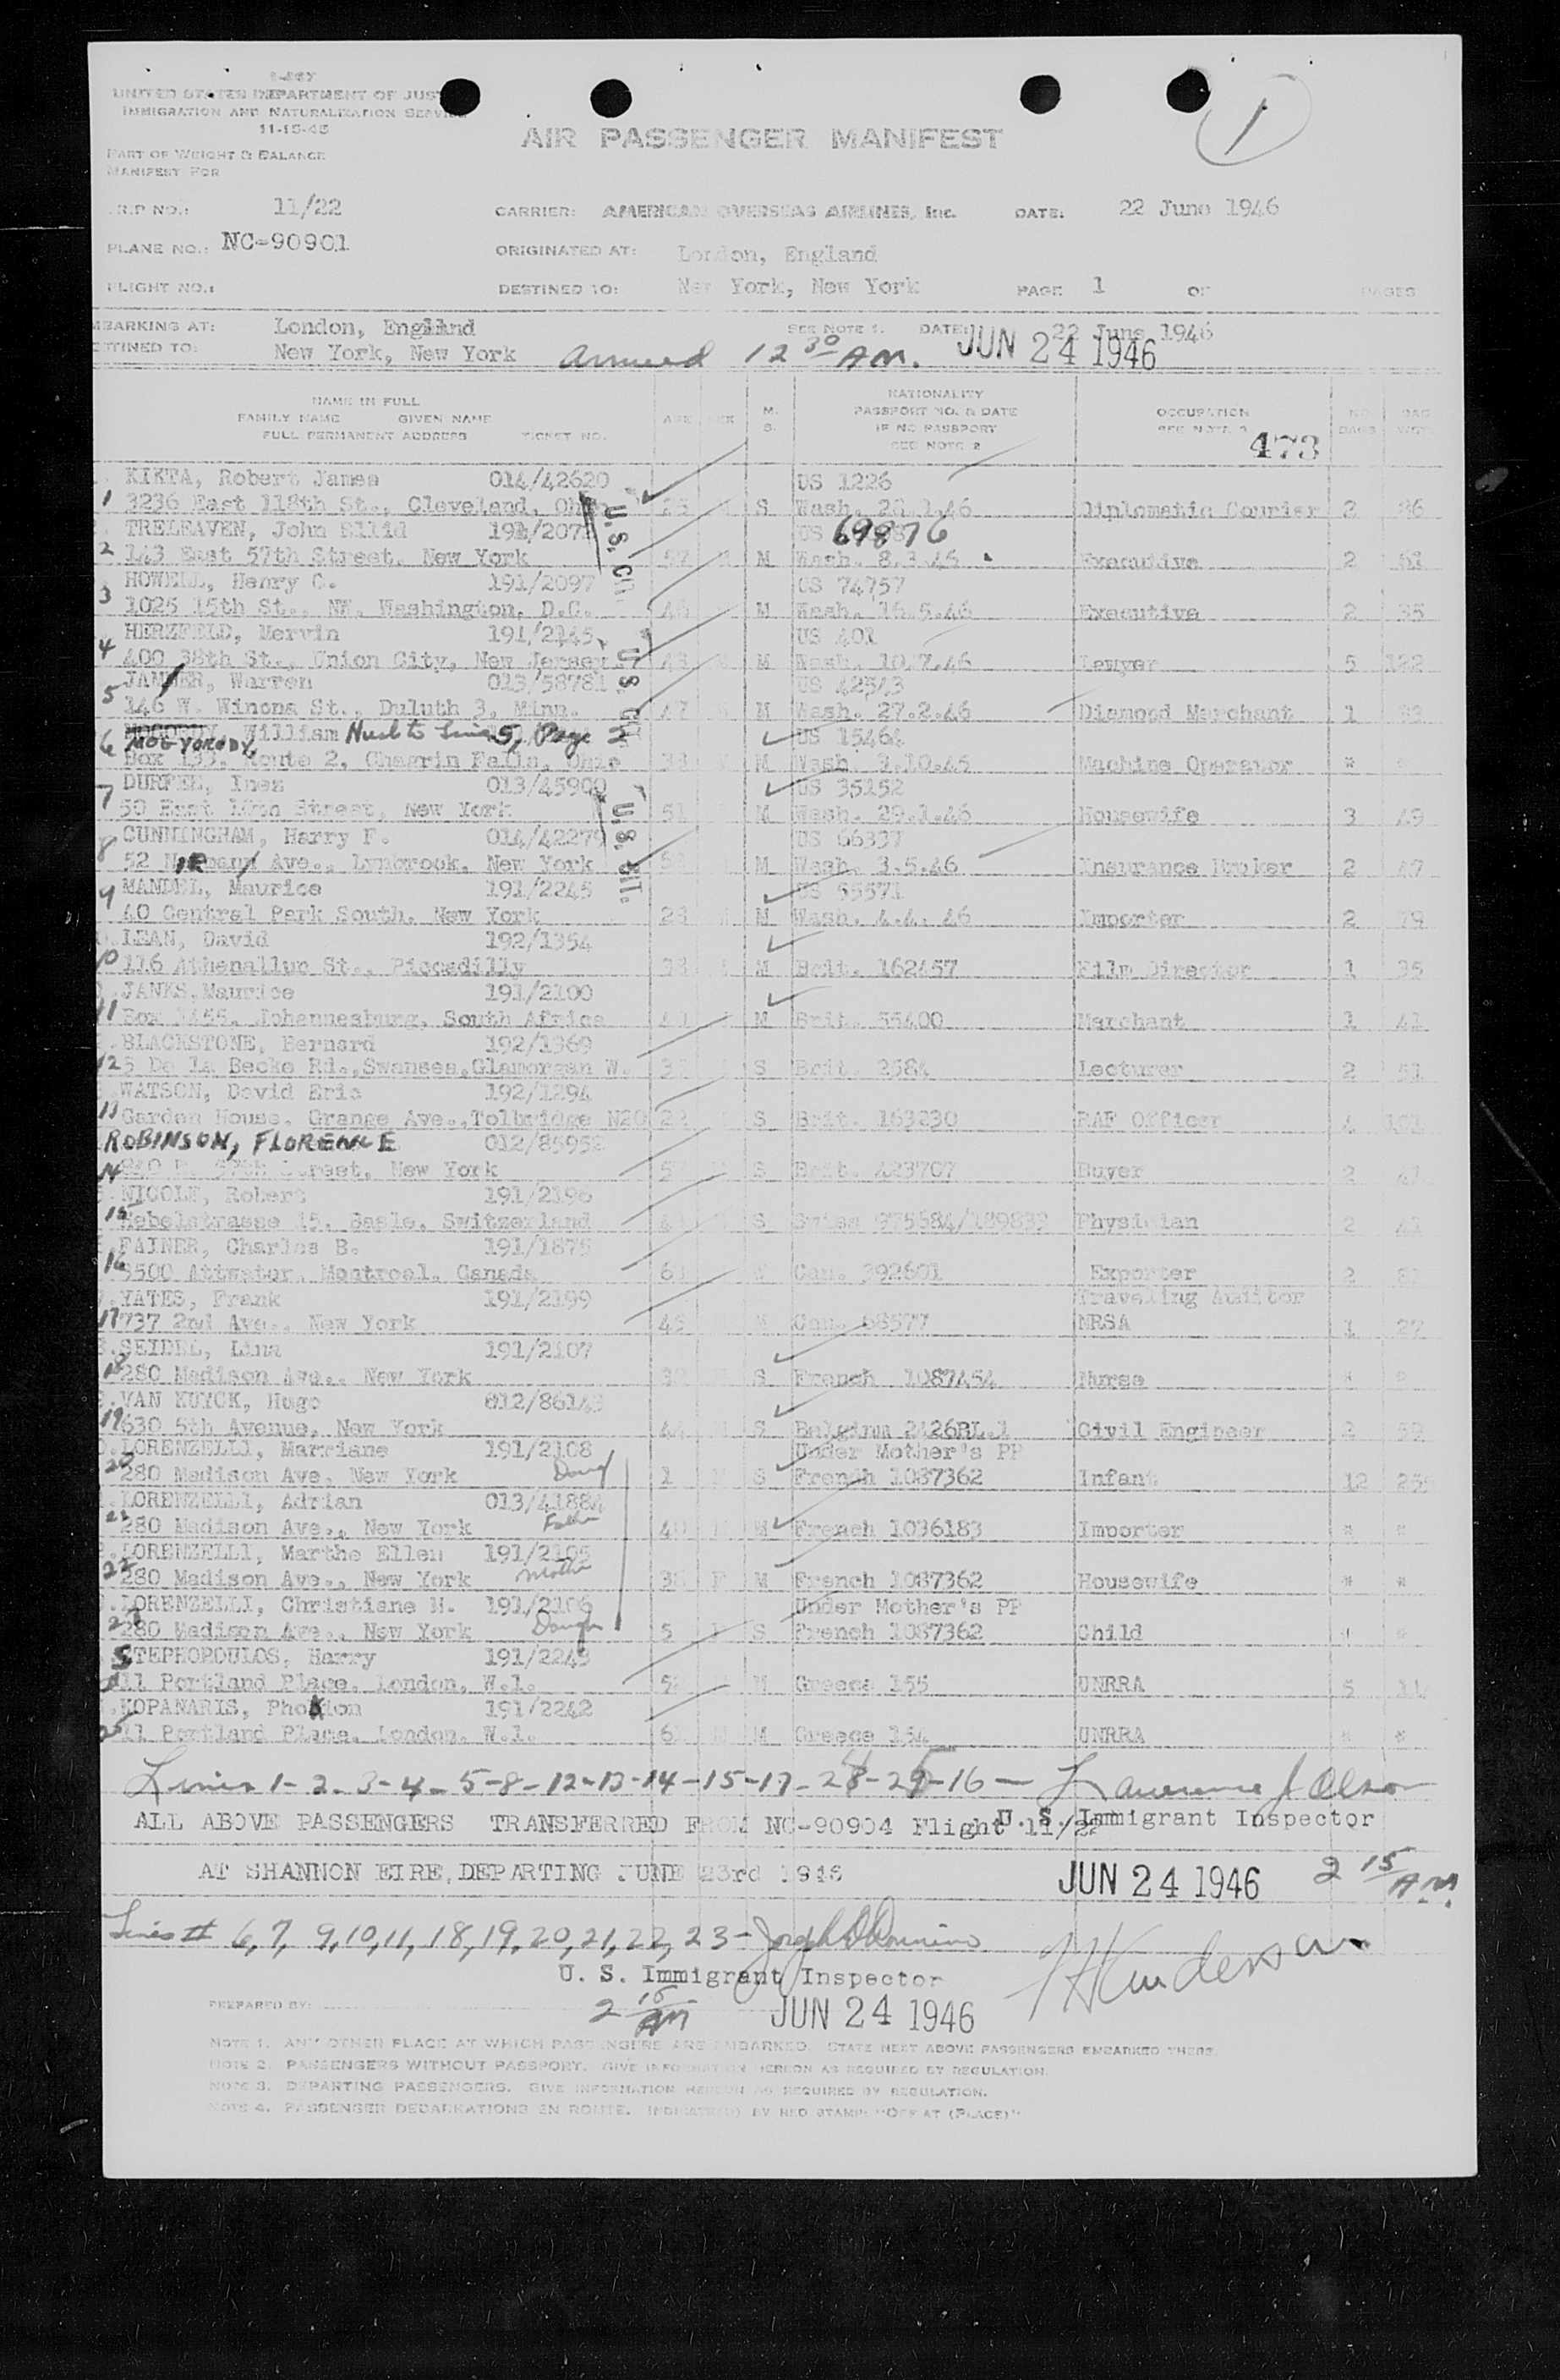 UNITED STATES DEPARTMENT OF JUST
IMMIGRATION AND NATURALIZATION SERVICE
11-15-45
AIR PASSENGER MANIFEST
1
PART OF WEIGHT & BALANCE
MANIFEST FOR
TRIP NO.: 11/22 CARRIER: AMERICAN OVERSEAS AIRLINES, Inc. DATE: 22 June 1946
PLANE NO.: NC-90901 ORIGINATED AT: London, England
FLIGHT NO.: DESTINED TO: New York, New York PAGE 1 OF PAGES
MBARKING AT: London, England SEE NOTE 1. DATE: 22 June 1946
STINED TO: New York, New York Arrived 12 30 AM. JUN 24 1946
NAME IN FULL
FAMILY NAME GIVEN NAME
FULL PERMANENT ADDRESS TICKET NO. AGE SEX M. S. NATIONALITY
PASSPORT NO. & DATE
IF NO PASSPORT
SEE NOTE 2
OCCUPATION
SEE NOTE 3
473
KIKTA, Robert James 014/42620 US 1226
1 3236 East 118th St., Cleveland, Ohio 25 S Wash. 28.1.46 Diplomatic Courier 2 36
TRELEAVEN, John 191/207 US 69876
2 143 East 57th Street, New York 57 M Wash. 8.3.46 Executive 2 51
HOWELL, Henry C. 191/2097 US 74757
3 1025 15th St., NW. Washington, D.C. 46 M Wash. 16.5.46 Executive 2 35
HERZFELD, Mervin 191/2145 US 401
4 400 38th St., Union City, New Jersey 43 M Wash. Lawyer 5 122
U.S. CIT.
Warren 013/58781 US 42543
5 146 W. Winona St., Duluth 3, Minn. 47 M Wash. 27.2.46 Diamond Merchant 1
MOGYORODY, William Next to Line 5, Page 2 US 15464
6 Box Route 2, Chagrin Falls, Ohio 38 M Wash. 3.10.45 Machine Operator * *
DURFEE, Inez 013/45900 US 35152
7 50 East 10th Street, New York 51 M Wash. 29.1.46 Housewife 3 49
CUNNINGHAM, Harry F. 014/42279 US 66337
8 52 Ave., Lynbrook, New York M Wash. 3.5.46 Insurance Broker 2 47
U.S. CIT.
MANDEL, Maurice 191/2245 US 55571
9 40 Central Park South, New York 28 M Wash. 4.4.46 Importer 2 79
LEAN, David 192/1354
10 116 St., Piccadilly 38 M Brit. 162457 Film Director 1 35
JANKS, Maurice 191/2100
11 Box Johannesburg, South Africa 40 M Brit. 55400 Merchant 1 41
BLACKSTONE, Bernard 192/1369
12 5 De La Beche Rd., Swansea, Glamorgan W. S Brit. 2584 Lecturer 2 51
WATSON, David Eric 192/1294
Garden House, Grange Ave., N20 S Brit. 163230 RAF Officer
ROBINSON, FLORENCE 012/85952
14 Street, New York S Brit. 423707 Buyer 2
NICOLE, Robert 191/2196
15 Hebelstrasse 15, Basle, Switzerland S Swiss Physician 2
FAINER, Charles B. 191/1875
16 3500 Attwater, Montreal, Canada M Can. 392601 Exporter 2
YATES, Frank 191/2199 Traveling Auditor
17 737 2nd Ave., New York 45 M Can. 68577 NRSA 1 27
SEIDEL, Lina 191/2107
18 280 Madison Ave., New York S French 1087454 Nurse * *
VAN KUYCK, Hugo 012/86143
19 630 5th Avenue, New York 44 S Belgium Civil Engineer 2 59
LORENZELLI, Marriane 191/2108 Under Mother's PP
20 280 Madison Ave, New York Daug 1 S French 1087362 Infant 12
LORENZELLI, Adrian 013/41884
21 280 Madison Ave., New York Father 40 M French 1036183 Importer * *
LORENZELLI, Marthe Ellen 191/2105
22 280 Madison Ave., New York Mother 38 F M French 1087362 Housewife * *
LORENZELLI, Christiane M. 191/2106 Under Mother's PP
23 280 Madison Ave., New York Daugh 5 S French 1087362 Child * *
STEPHOPOULOS, Harry 191/2243
11 Portland Place, London, W.1. M Greece 155 UNRRA 5
KOPANARIS, Phokion 191/2242
25 11 Portland Place, London, W.1. M Greece 154 UNRRA * *
Lines 1-2-3-4-5-8-12-13-14-15-17-24-25-16 - Lawrence J. Olson
U. S. Immigrant Inspector
ALL ABOVE PASSENGERS TRANSFERRED FROM NC-90904 Flight 11/22
AT SHANNON EIRE, DEPARTING JUNE 23rd 1946 JUN 24 1946 2 15 AM.
Lines # 6, 7, 9, 10, 11, 18, 19, 20, 21, 22, 23 -
U. S. Immigrant Inspector
2 15 AM JUN 24 1946
PREPARED BY:
NOTE 1. ANY OTHER PLACE AT WHICH PASSENGERS ARE EMBARKED. STATE NEXT ABOVE PASSENGERS EMBARKED THERE.
NOTE 2. PASSENGERS WITHOUT PASSPORT. GIVE INFORMATION HEREON AS REQUIRED BY REGULATION.
NOTE 3. DEPARTING PASSENGERS. GIVE INFORMATION HEREON AS REQUIRED BY REGULATION.
NOTE 4. PASSENGER DEBARKATIONS EN ROUTE. INDICATE(D) BY RED STAMP: "OFF AT (PLACE)"